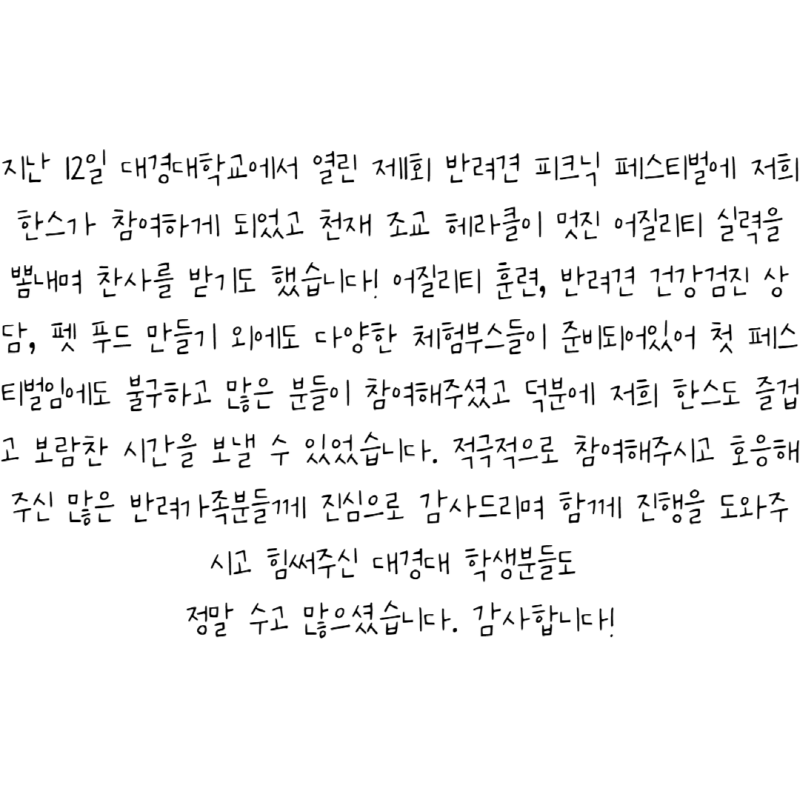 지난 12일 대경대학교에서 열린 제1회 반려견 피크닉 페스티벌에 저희
한스가 참여하게 되었고 천재 조교 헤라클이 멋진 어질리티 실력을
뽐내며 찬사를 받기도 했습니다! 어질리티 훈련, 반려견 건강검진 상
담, 펫 푸드 만들기 외에도 다양한 체험부스들이 준비되어있어 첫 페스
티벌임에도 불구하고 많은 분들이 참여해주셨고 덕분에 저희 한스도 즐겁
고 보람찬 시간을 보낼 수 있었습니다. 적극적으로 참여해주시고 호응해
주신 많은 반려가족분들께 진심으로 감사드리며 함께 진행을 도와주
시고 힘써주신 대경대 학생분들도
정말 수고 많으셨습니다. 감사합니다!